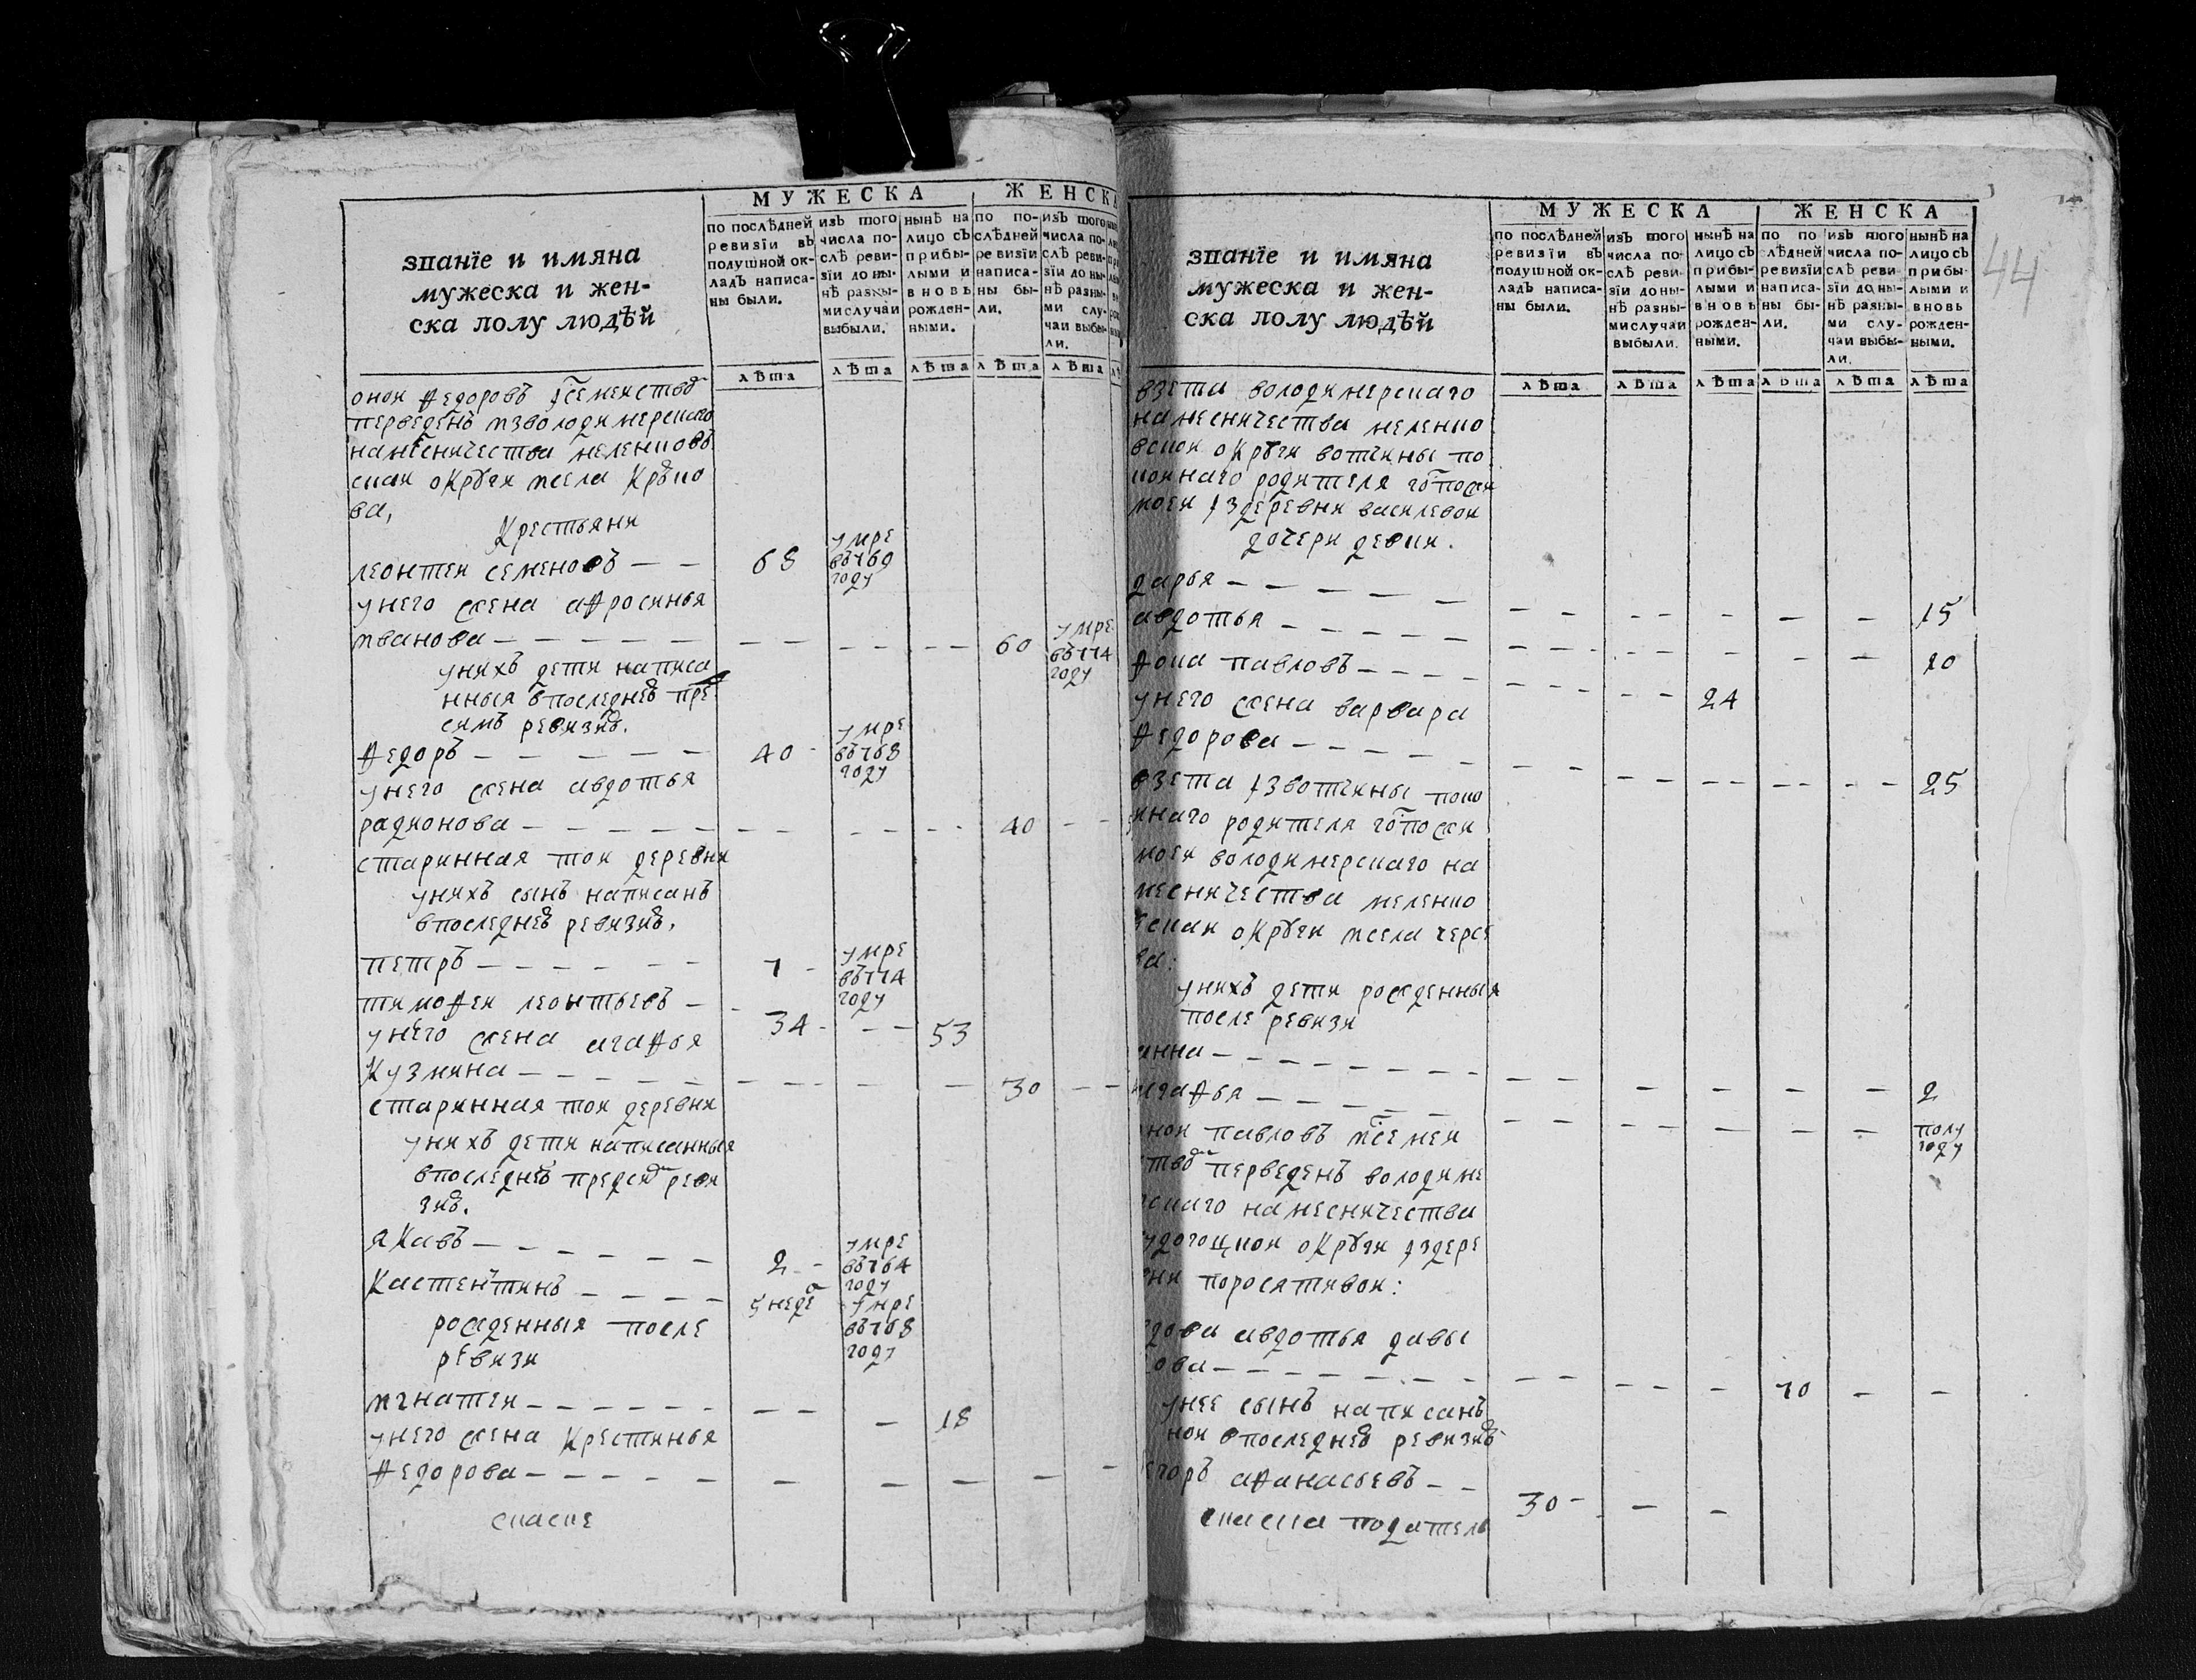 званїе и имяна
мужеска и жен-
ска полу людѣй
МУЖЕСКА
ЖЕНСКА
по послѣдней ревизїи въ подушной окладъ написаны были.
изъ того числа послѣ ревизїи до нынѣ разными случаи выбыли.
нынѣ на лицо съ прибылыми и вновь рожденными.
по послѣдней ревизїи написаны были.
изъ того числа послѣ ревизїи до нынѣ разными случаи выбыли.
лѣта лѣта лѣта лѣта лѣта
оной Ѳедоровъ
переведенъ изволодимерскаго
наместничества меленковъ
ской округи
ва,
Крестьяни
леонтеи семеновъ — — 68 умре въ 769 году
унего жена аѳросинья
иванова — — — — — 60 умре въ 774 году
унихъ дети написа
нныя впоследнеѣ пре
симъ ревизиѣ.
Ѳедоръ — — — — 40 умре въ 768 году
унего жена авдотья
радионова — — — — — 40
старинная тои деревни
унихъ сынъ написанъ
впоследнеѣ ревизиѣ,
петръ — — — — — 7 умре въ 774 году
тимоѳеи леонтьевъ — 34 — — 53
унего жена агаѳья
Кузмина — — — — — 30
старинная тои деревни
унихъ дети написанныя
впоследнеѣ предсиѣ реви
зиѣ.
яКавъ — — — — — 2 умре въ 764 году
Кастентинъ — — — — 5 неде умре въ 768 году
рожденныя после
ревизи
игнатеи — — — — — 18
унего жена Крестинья
Ѳедорова — — — — —
скаске
44
званїе и имяна
мужеска и жен-
ска полу людѣй
МУЖЕСКА
ЖЕНСКА
по послѣдней ревизїи въ подушной окладъ написаны были.
изъ того числа послѣ ревизїи до нынѣ разными случаи выбыли.
нынѣ на лицо съ прибылыми и вновь рожденными.
по послѣдней ревизїи написаны были.
изъ того числа послѣ ревизїи до нынѣ разными случаи выбыли.
нынѣ на лицо съ прибылыми и вновь рожденными.
лѣта лѣта лѣта лѣта лѣта лѣта
взета володимерскаго
намесничества меленко
вскои округи вотчины по
коинаго родителя гопожи
моеи издеревни василевои
дочери девки.
дарья — — — — 15
авдотья — — — — — 10
Ѳока павловъ — — — — 24
унего жена варвара
Ѳедорова — — — — 25
взета извотчины поко
инаго родителя гопожи
моеи володимерскаго на
месничества меленко
вскои округи
унихъ дети рожденныя
после ревизи
анна — — — — — 2
агаѳья — — — — — полу году
онои павловъ
переведенъ володиме
рскаго намесничества
судогоцкои округи издере
вни поросятивои:
вдова авдотья давы
дова — — — — — 70
унее сынъ написанъ
нои впоследнеѣ ревизиѣ
егоръ аѳанасьевъ — — 30
скаска податель